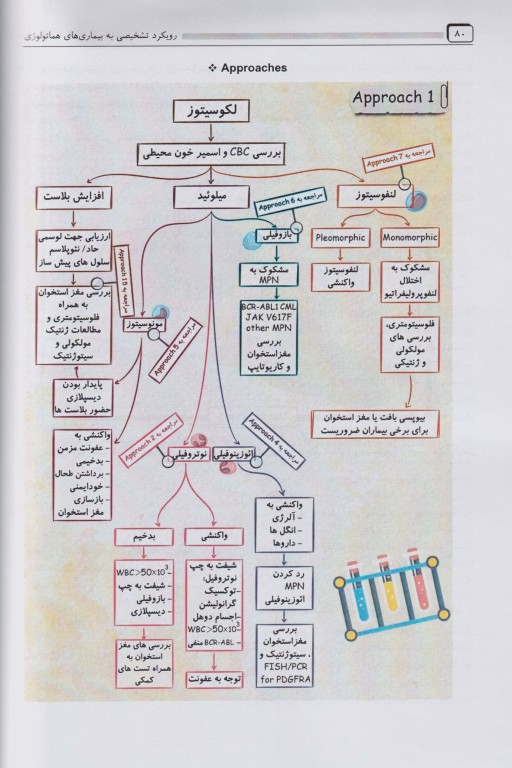 ۸۰
رویکرد تشخیصی به بیماری‌های هماتولوژی
❖ Approaches
Approach 1
لکوسیتوز
بررسی CBC و اسمیر خون محیطی
مراجعه به Approach 7
لنفوسیتوز
میلوئید
افزایش بلاست
Monomorphic
Pleomorphic
مشکوک به
اختلال
لنفوپرولیفراتیو
لنفوسیتوز
واکنشی
فلوسیتومتری،
بررسی های
مولکولی
و ژنتیکی
بیوپسی بافت یا مغز استخوان
برای برخی بیماران ضروریست
مراجعه به Approach 6
بازوفیلی
مشکوک به
MPN
BCR-ABL1 CML
JAK V617F
other MPN
بررسی
مغزاستخوان
و کاریوتایپ
ارزیابی جهت لوسمی
حاد/ نئوپلاسم
سلول های پیش ساز
بررسی مغز استخوان
به همراه
فلوسیتومتری و
مطالعات ژنتیک
مولکولی و
سیتوژنتیک
مراجعه به Approach 15
مونوسیتوز
مراجعه به Approach 5
پایدار بودن
دیسپلازی
حضور بلاست ها
واکنشی به
- عفونت مزمن
- بدخیمی
- برداشتن طحال
- خودایمنی
- بازسازی
مغز استخوان
مراجعه به Approach 4
ائوزینوفیلی
مراجعه به Approach 2
نوتروفیلی
واکنشی به
- آلرژی
- انگل ها
- داروها
رد کردن
MPN
ائوزینوفیلی
بررسی
مغزاستخوان
، سیتوژنتیک و
FISH/PCR
for PDGFRA
واکنشی
شیفت به چپ
نوتروفیل:
-توکسیک
گرانولیشن
-اجسام دوهل
WBC>50×10³
- BCR-ABL منفی
توجه به عفونت
بدخیم
WBC>50×10³-
- شیفت به چپ
- بازوفیلی
- دیسپلازی
بررسی های مغز
استخوان به
همراه تست های
کمکی